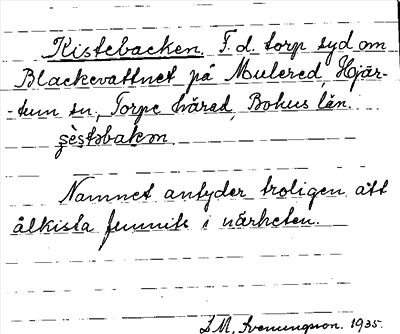 Kistebacken. F.d. torp syd om
Blackevattnet på Mulered, Hjär-
-tum sn, Torpe härad, Bohus län.
şèstəbakən.
Namnet antyder troligen att
ålkista funnits i närheten.
S.M. Svenungson. 1935.